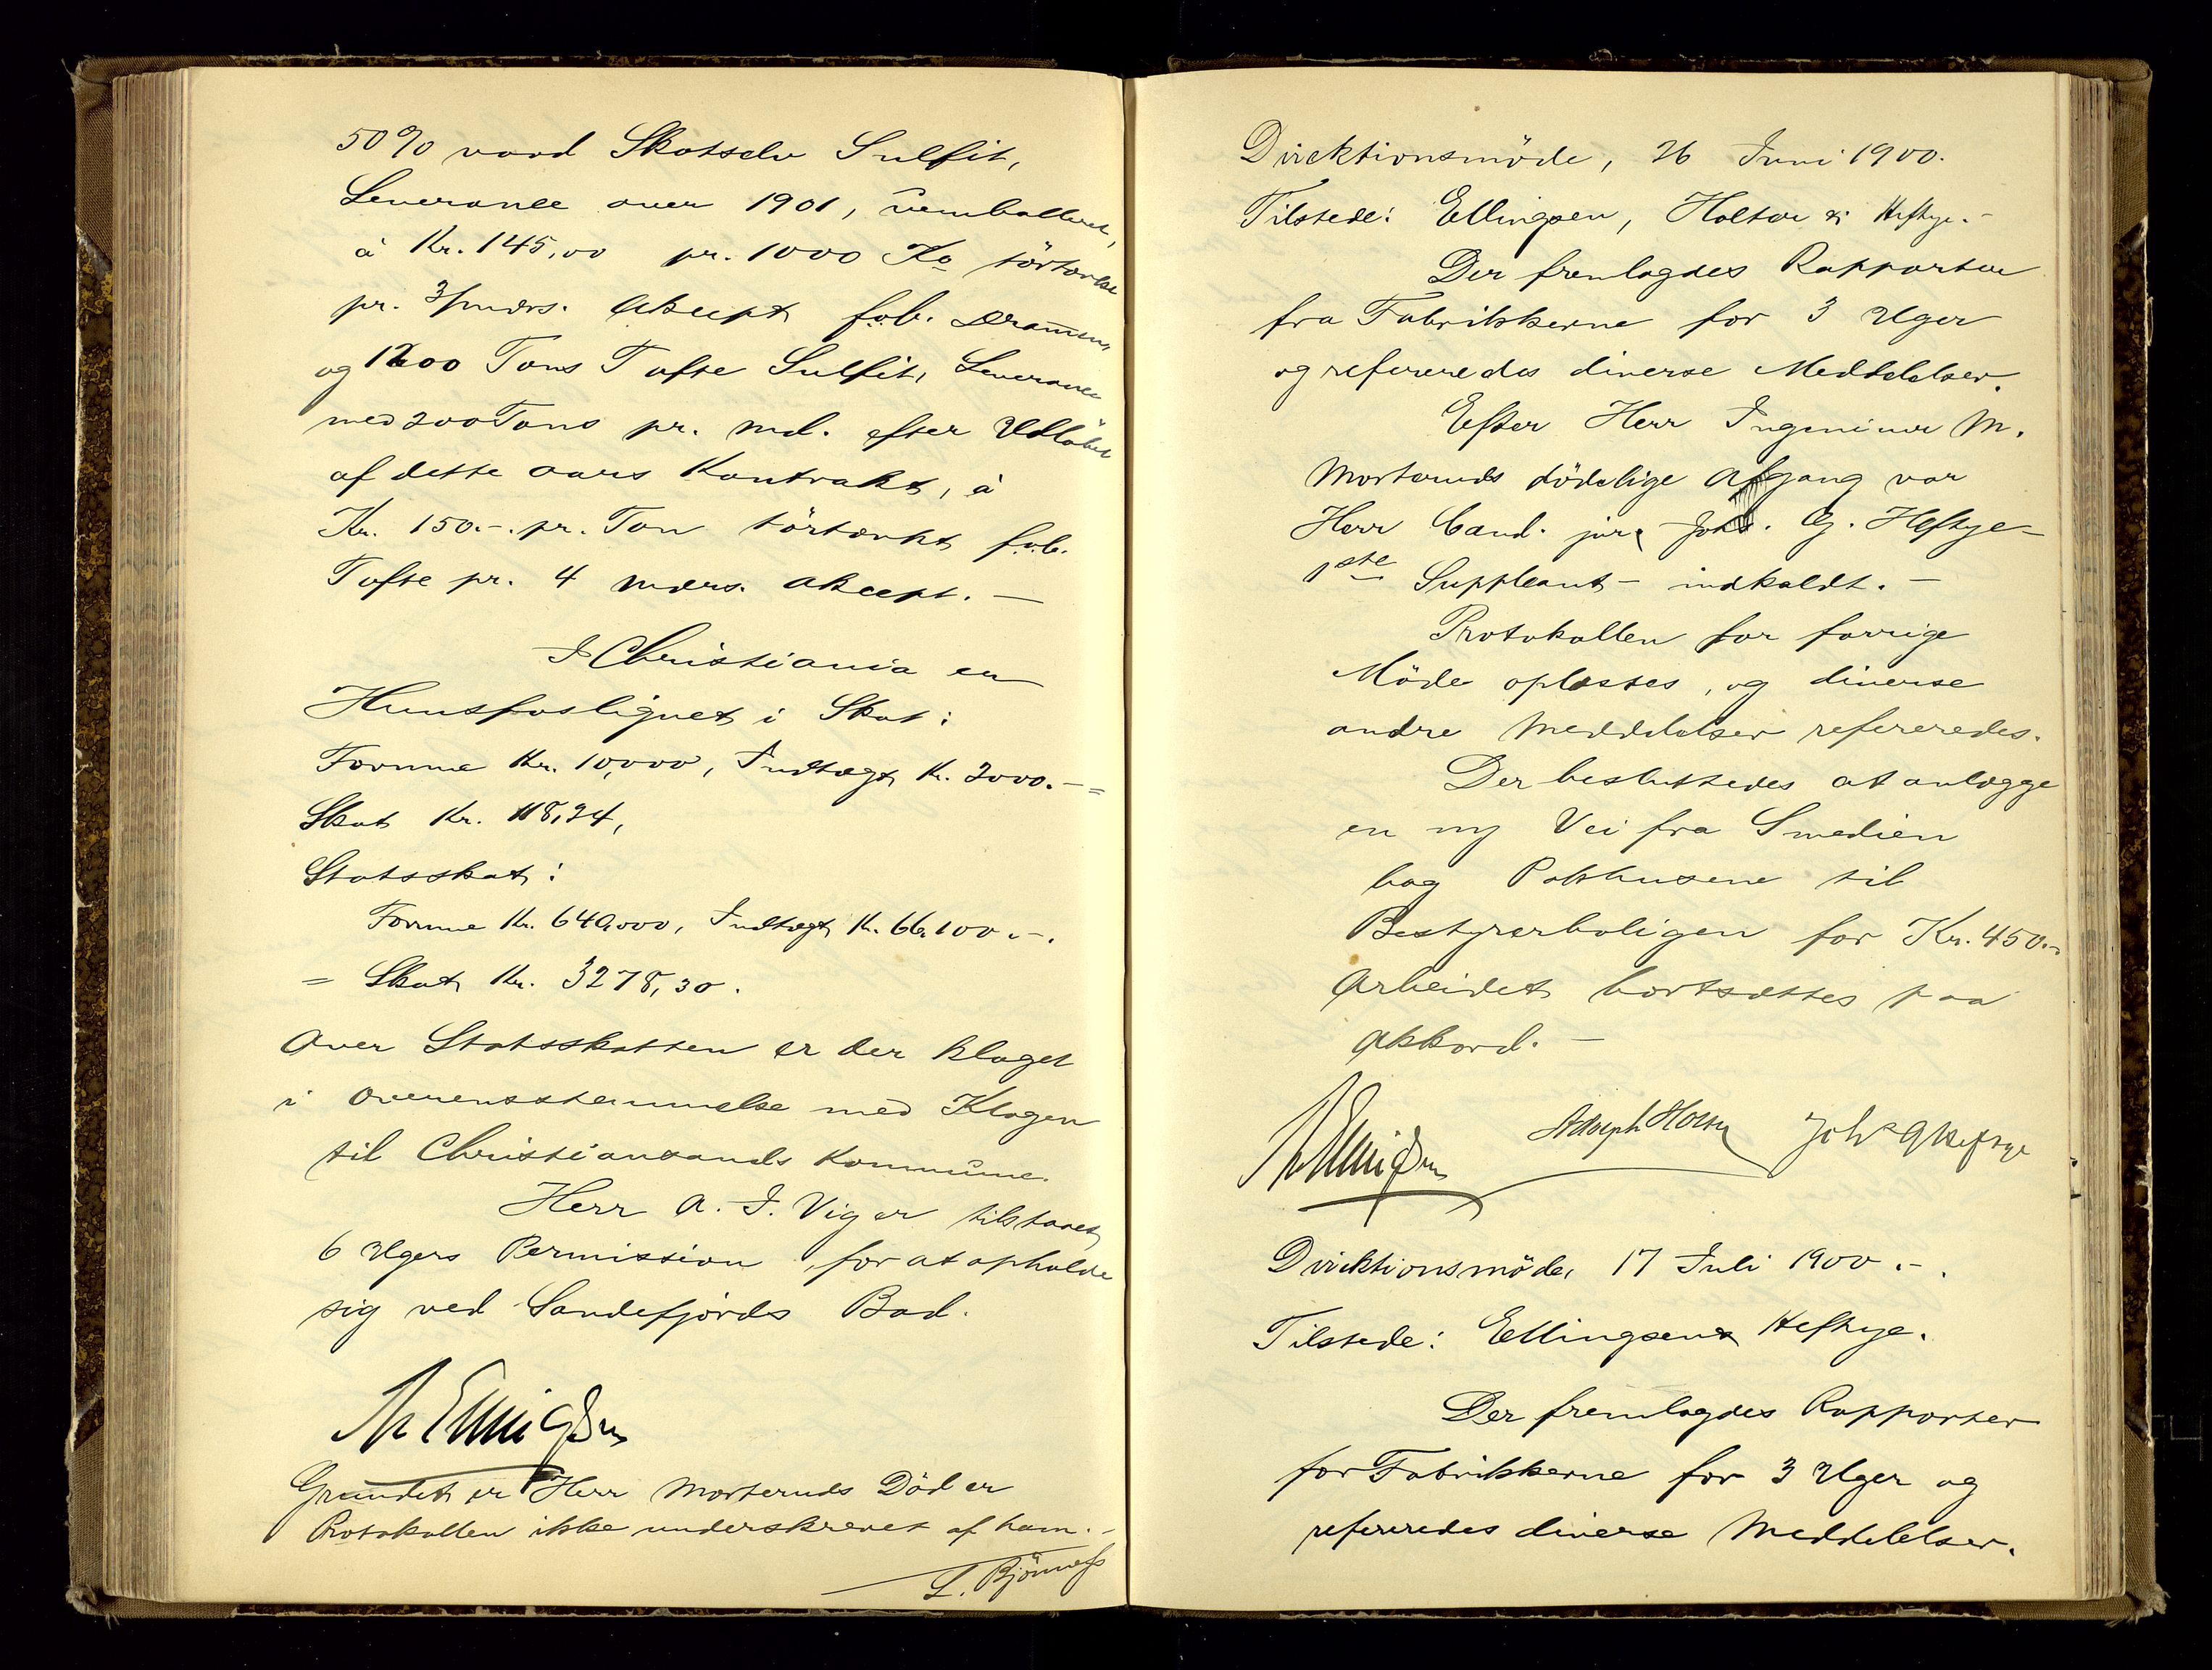 50% vaad Skotselv Sulfit,
Leverance over 1901, uemballeret,
à Kr. 145,00 pr. 1000 Ko törtænkt
pr. 3/mdrs. Akcept f.o.b. Drammen,
og 1200 Tons Tofte Sulfit, Leverance
med 200 Tons pr. md. efter Udløbet
af dette aars Kontrakt, à
Kr. 150.-. pr. Ton törtænkt f.o.b.
Tofte pr. 4 mdrs. akcept. —
I Christiania er
Hunsfos lignet i Skat:
Formue Kr. 10,000, Indtægt Kr. 2000.- =
Skat Kr. 118,24,
Statsskat:
Formue Kr. 640,000, Indtægt Kr. 66.100.-.
= Skat Kr. 3278,30.
Over Statsskatten er der klaget
i Overensstemmelse med Klagen
til Christiansands Kommune.
Herr A. I. Vig er tilstaaet
6 Ugers Permission, for at opholde
sig ved Sandefjords Bad.
Ellingsen
Grundet er Herr Morteruds Död er
Protokollen ikke underskrevet af ham.-
L. Björness
Direktionsmöde, 26 Juni 1900.
Tilstede: Ellingsen, Holter & Heftye.-
Der fremlagdes Rapporter
fra Fabrikkerne for 3 Uger
og refereredes diverse Meddelelser.
Efter Herr Ingeniør M.
Morteruds dödelige Afgang var
Herr Cand. jur. Johs. G. Heftye -
1ste Suppleant - indkaldt. -
Protokollen for forrige
Möde oplæstes, og diverse
andre Meddelelser refereredes.
Der besluttedes at anlægge
en ny Vei fra Smedien
bag Pakhusene til
Bestyrerboligen for Kr. 450.-
Arbeidet bortsættes paa
Akkord. -
Ellingsen Adolph Holter Johs G Heftye
Direktionsmöde, 17 Juli 1900.-.
Tilstede: Ellingsen & Heftye.
Der fremlagdes Rapporter
for Fabrikkerne for 3 Uger og
refereredes diverse Meddelelser.